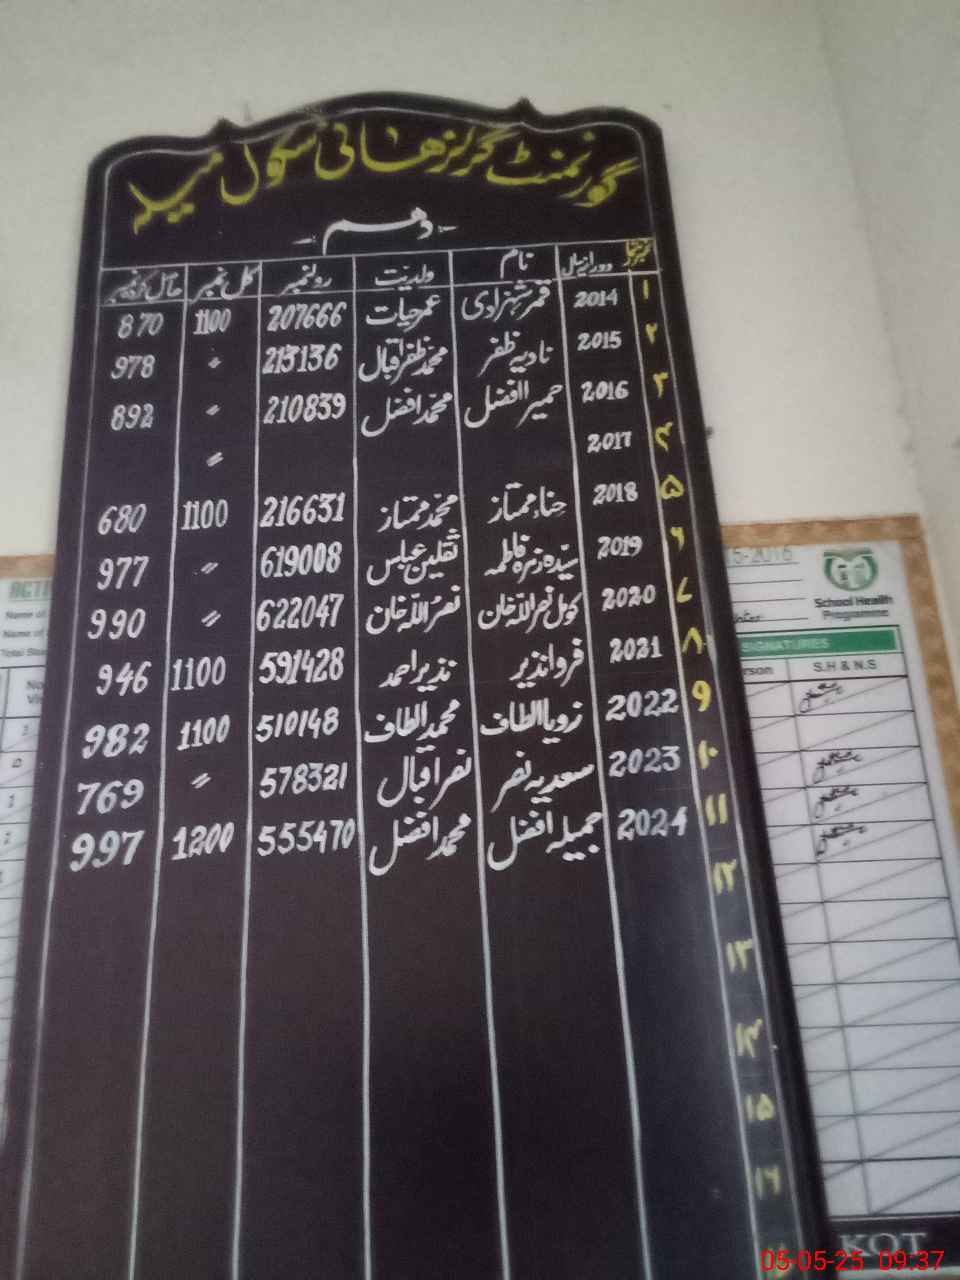 گورنمنٹ گرلز ھائی سکول میلہ
دھم
نمبر شمار دورانیہ نام ولدیت رولنمبر کل نمبر حاصل کردہ نمبر
۱ 2014 قمر شہزادی عمر حیات 207666 1100 870
۲ 2015 نادیہ ظفر محمد ظفر اقبال 213136 〃 978
۳ 2016 حمیرا افضل محمد افضل 210839 〃 892
۴ 2017 〃
۵ 2018 حناء ممتاز محمد ممتاز 216631 1100 680
۶ 2019 سیدہ زہرہ فاطمہ ثقلین عباس 619008 〃 977
۷ 2020 کومل نصر اللہ خان نصر اللہ خان 622047 〃 990
۸ 2021 فروا نذیر نذیر احمد 591428 1100 946
9 2022 زویا الطاف محمد الطاف 510148 1100 982
۱۰ 2023 سعدیہ نصر نصر اقبال 578321 〃 769
۱۱ 2024 جمیلہ افضل محمد افضل 555470 1200 997
۱۲
۱۳
۱۴
۱۵
۱۶
15-2016
School Health
Programme
SIGNATURES
S.H & N.S
KOT
05-05-25 09:37